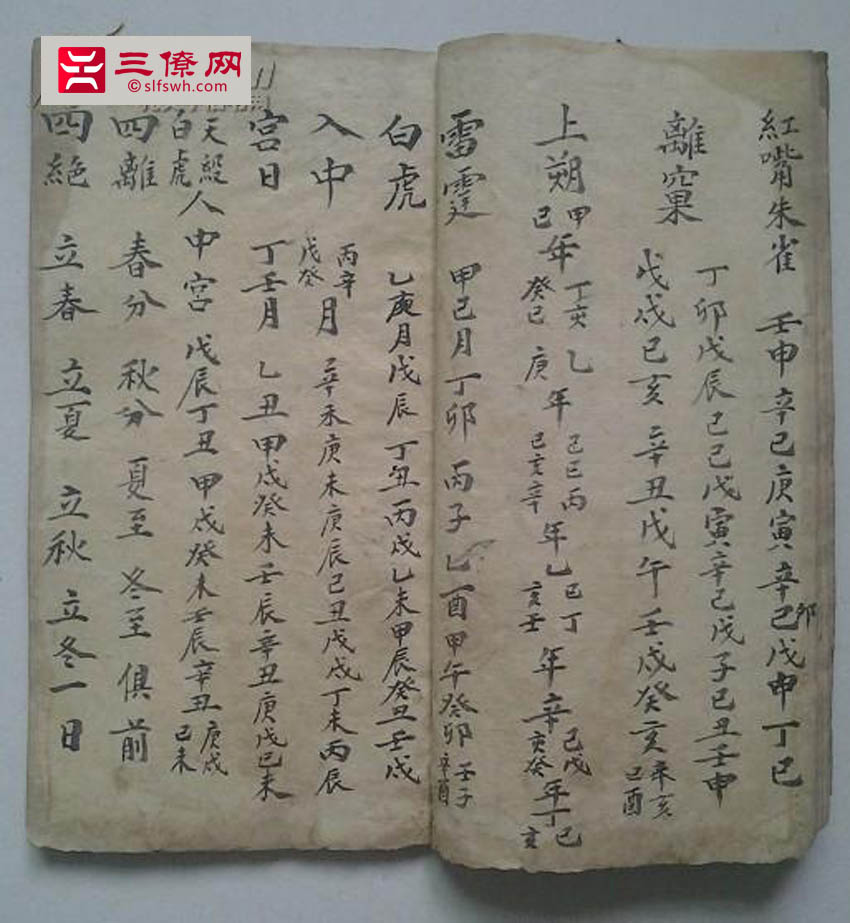 三僚网
©slfswh.com
紅嘴朱雀 壬申辛己庚寅辛己卯戊申丁己
丁卯戊辰己己戊寅辛己戊子己丑壬申
離窠 戊戌己亥辛丑戊午壬戌癸亥辛亥己酉
上朔 甲己年丁亥癸己 乙庚年己己己亥 丙辛年乙己乙亥 丁壬年辛己辛亥 戊癸年丁己丁亥
雷霆 甲己月丁卯丙子乙酉甲午癸卯壬子辛酉
白虎 乙庚月戊辰丁丑丙戌乙未甲辰癸丑壬戌
入中 丙辛戊癸月辛未庚未庚辰己丑戊戌丁未丙辰
宮日 丁壬月乙丑甲戌癸未壬辰辛丑庚戌己未
天殺白虎入中宮 戊辰丁丑甲戌癸未壬辰辛丑庚戌己未
四離 春分 秋分 夏至 冬至俱前
四絕 立春 立夏 立秋 立冬一日